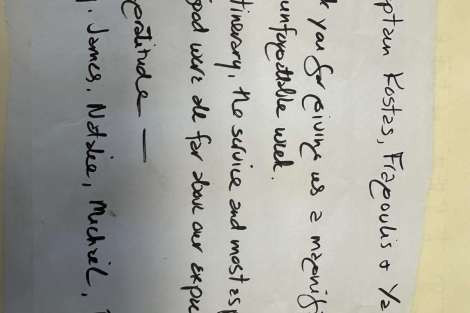 ptain Kostas, Fragoulis + Ya
k you for giving us a magnifi
unforgettable week.
tinerary, the service and most esp
food were all far above our expec
gratitude —
James, Natalie, Michael,